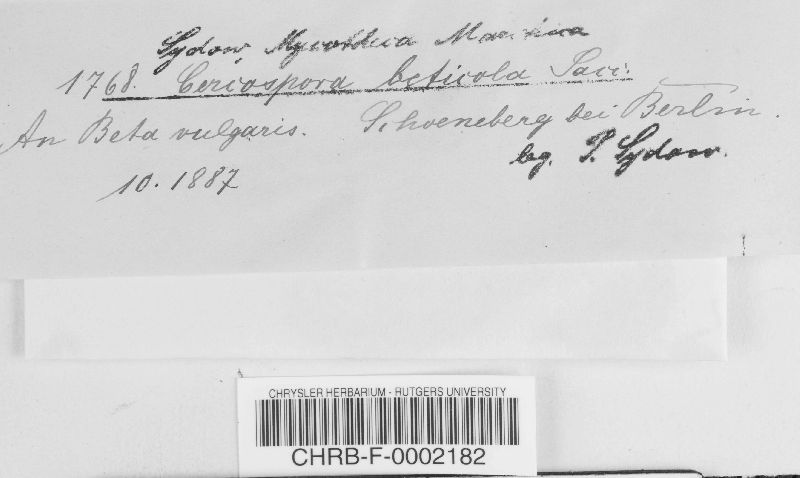 Sydow, Mycotheca Marchica
1768. Cercospora beticola Sacc.
An Beta vulgaris. Schoeneberg bei Berlin.
leg. P. Sydow.
10. 1887
CHRYSLER HERBARIUM - RUTGERS UNIVERSITY
CHRB-F-0002182